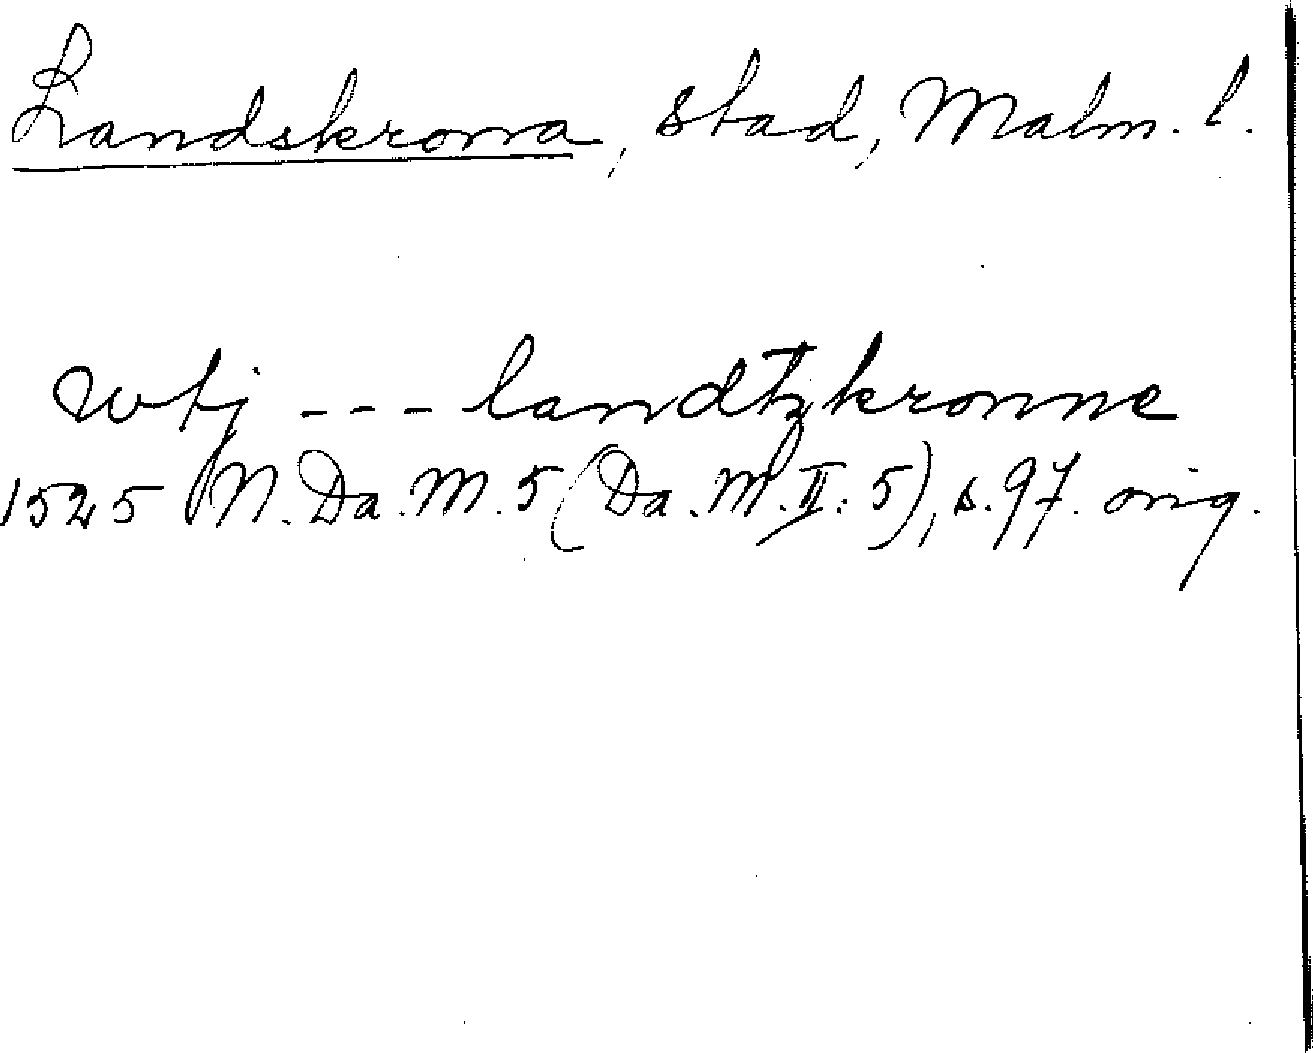 Landskrona, stad, Malm. l.
wtj --- landtzkronne
1525 N. Da. M. 5 (Da. M. II: 5), s. 97. orig.